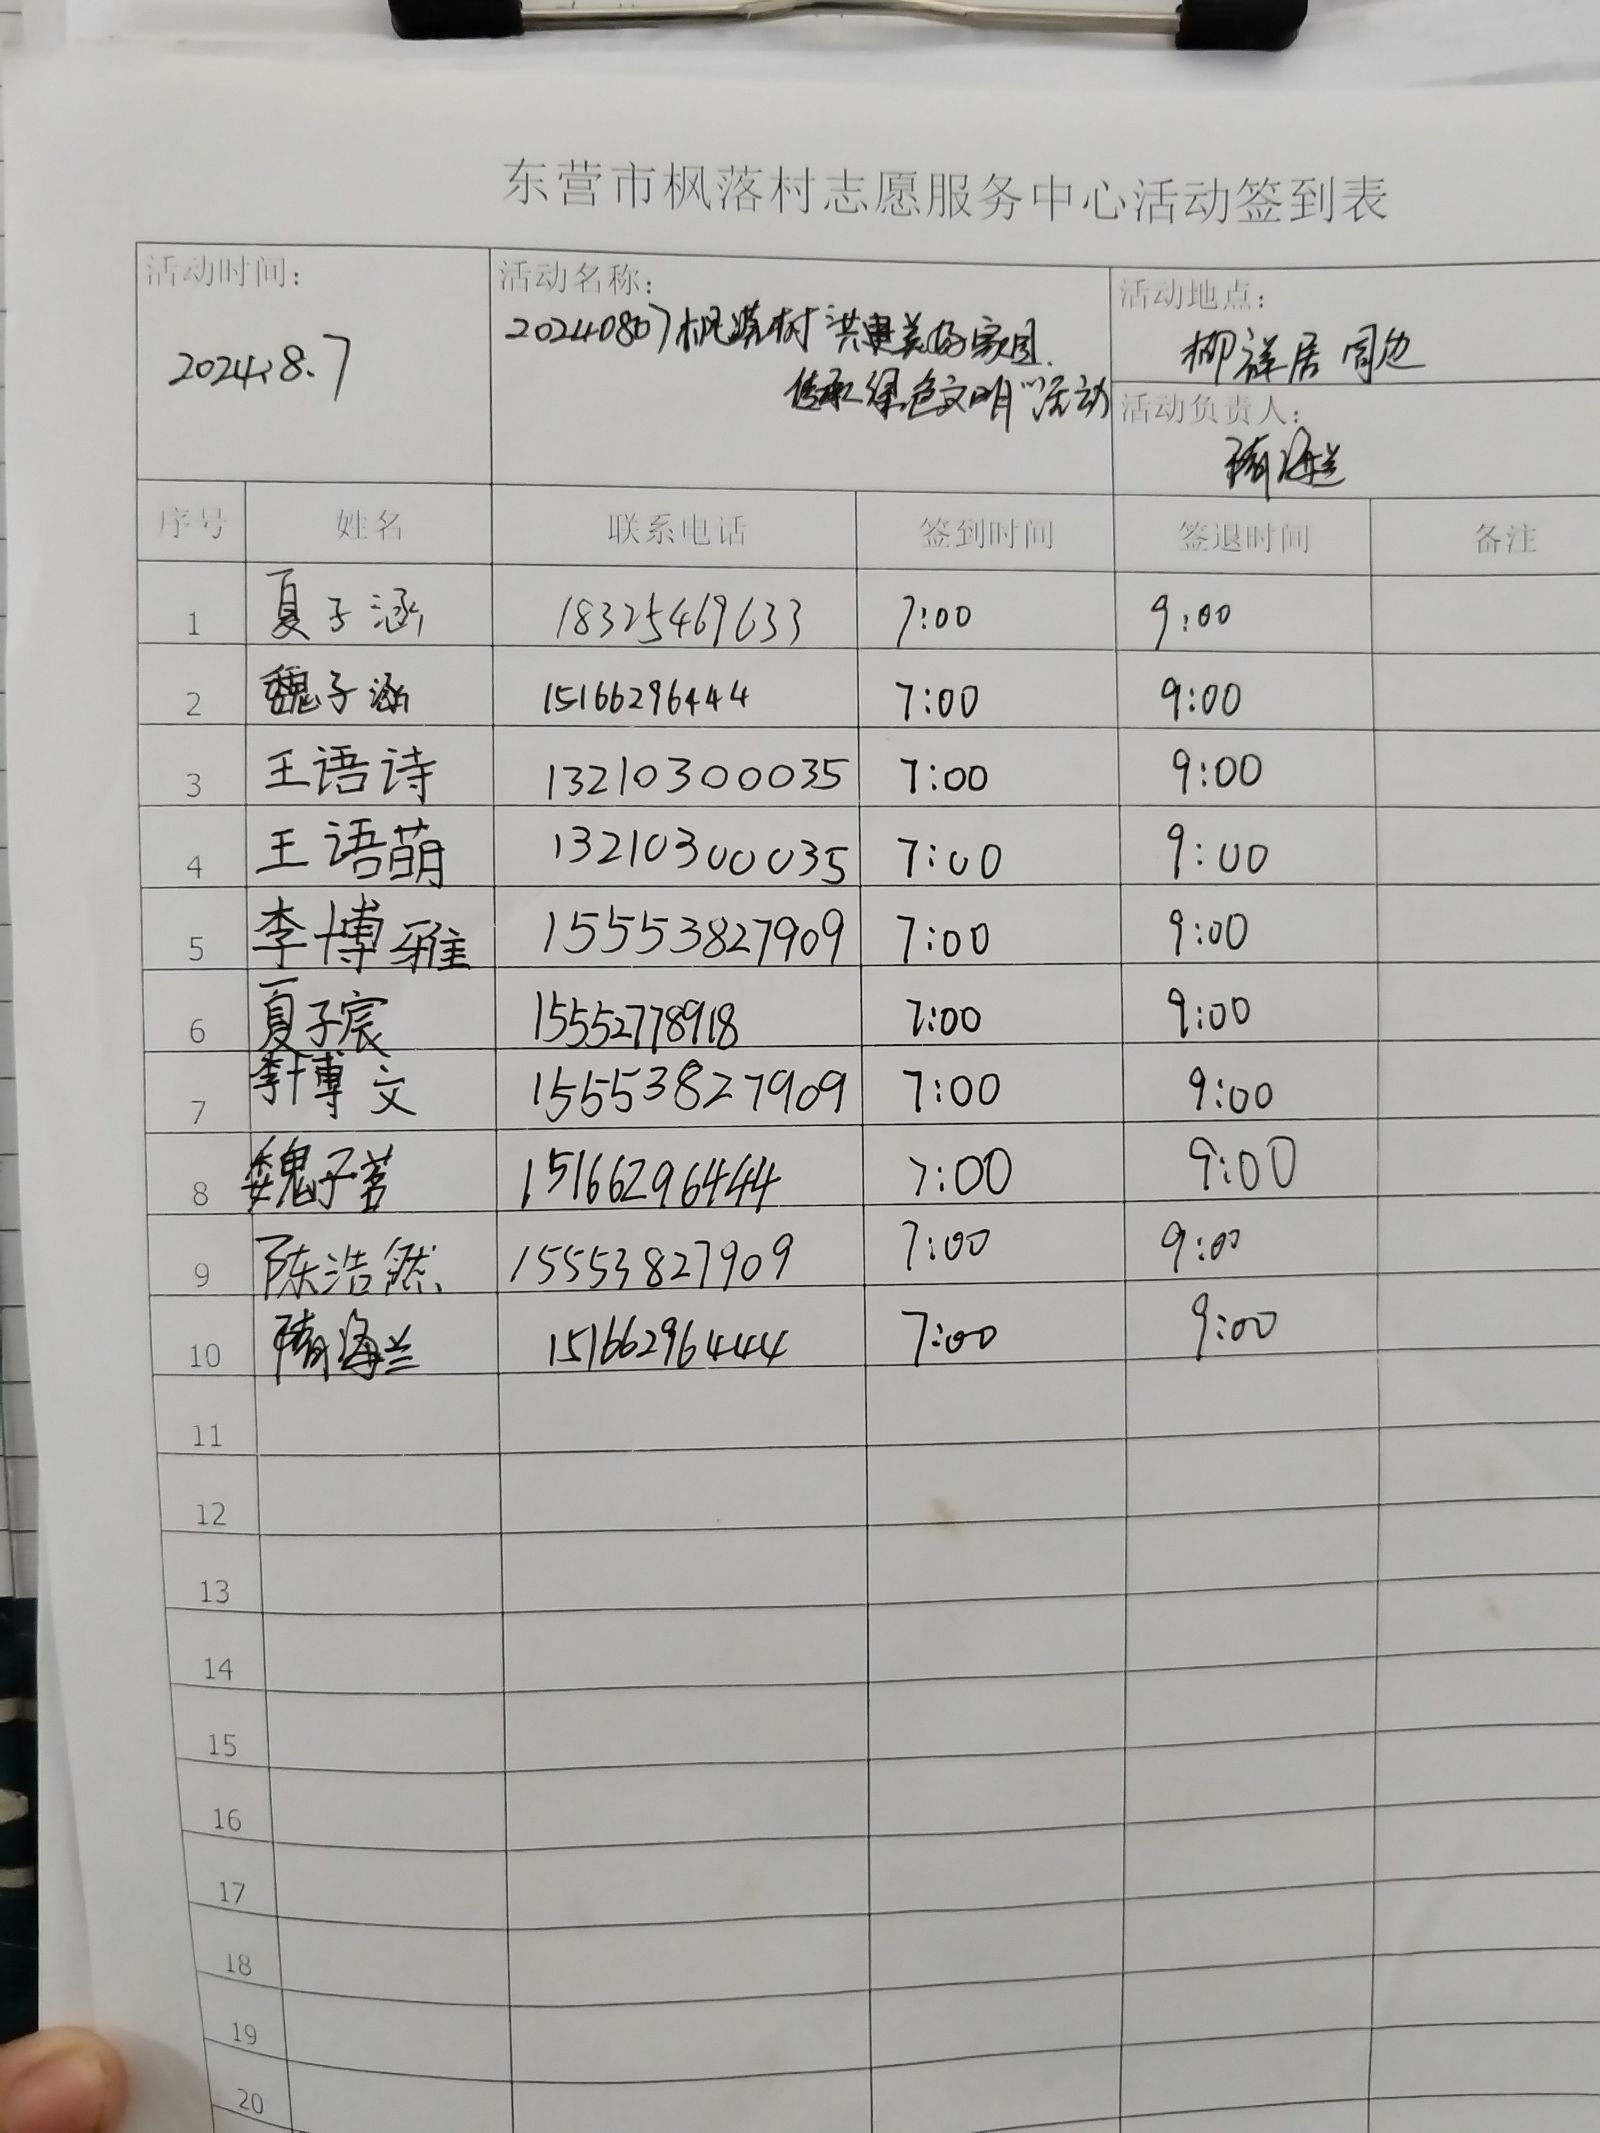 东营市枫落村志愿服务中心活动签到表
活动时间： 活动名称： 活动地点：
2024.8.7 20240807枫落村 共建美好家园 柳祥居 周边
传承绿色文明"活动 活动负责人：
隋海兰
序号 姓名 联系电话 签到时间 签退时间 备注
1 夏子涵 18325469633 7:00 9:00
2 魏子涵 15166296444 7:00 9:00
3 王语诗 13210300035 7:00 9:00
4 王语萌 13210300035 7:00 9:00
5 李博雅 15553827909 7:00 9:00
6 夏子宸 15552778918 7:00 9:00
7 李博文 15553827909 7:00 9:00
8 魏子茗 15166296444 7:00 9:00
9 陈浩然 15553827909 7:00 9:00
10 隋海兰 15166296444 7:00 9:00
11
12
13
14
15
16
17
18
19
20